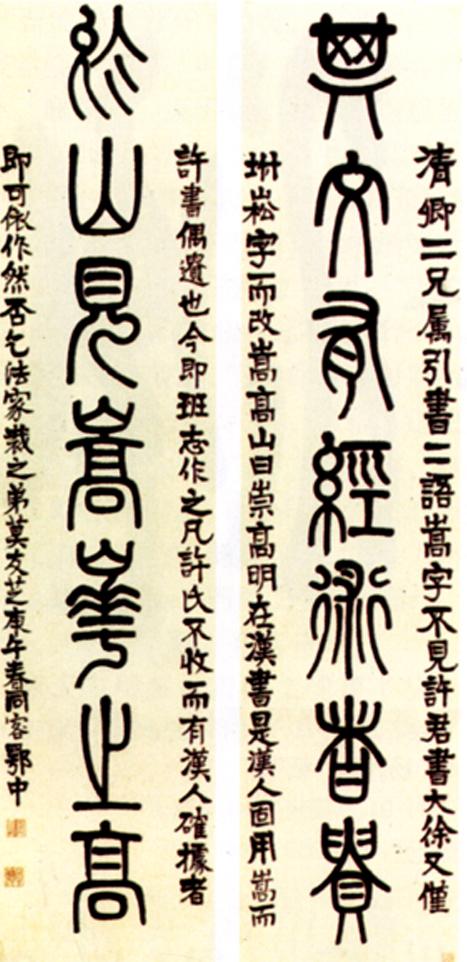 清卿二兄属引書二語嵩字不見許君書大徐又僅
其文有經術者貴
坿崧字而改嵩高山曰崇高明在漢書是漢人固用嵩而
許書偶遺也今即班志作之凡許氏不收而有漢人確據者
於山見嵩華之高
即可依作然否乞法家裁之弟莫友芝庚午春同客鄂中